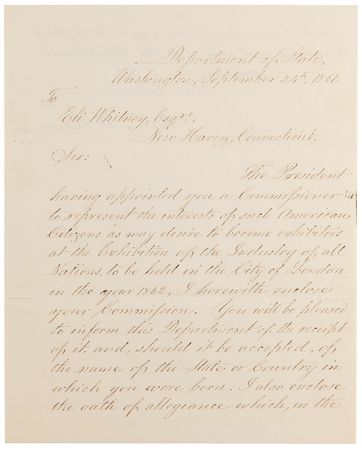 Department of State,
Washington, September 24th, 1861.
To
Eli Whitney, Esqre,
New Haven, Connecticut.
Sir:
The President
having appointed you a Commissioner
to represent the interests of such American
Citizens as may desire to become exhibitors
at the Exhibition of the Industry of all
Nations, to be held in the City of London
in the year 1862, I herewith enclose
your Commission. You will be pleased
to inform this Department of the receipt
of it and, should it be accepted, of
the name of the State or Country in
which you were born. I also enclose
the oath of allegiance which, in the